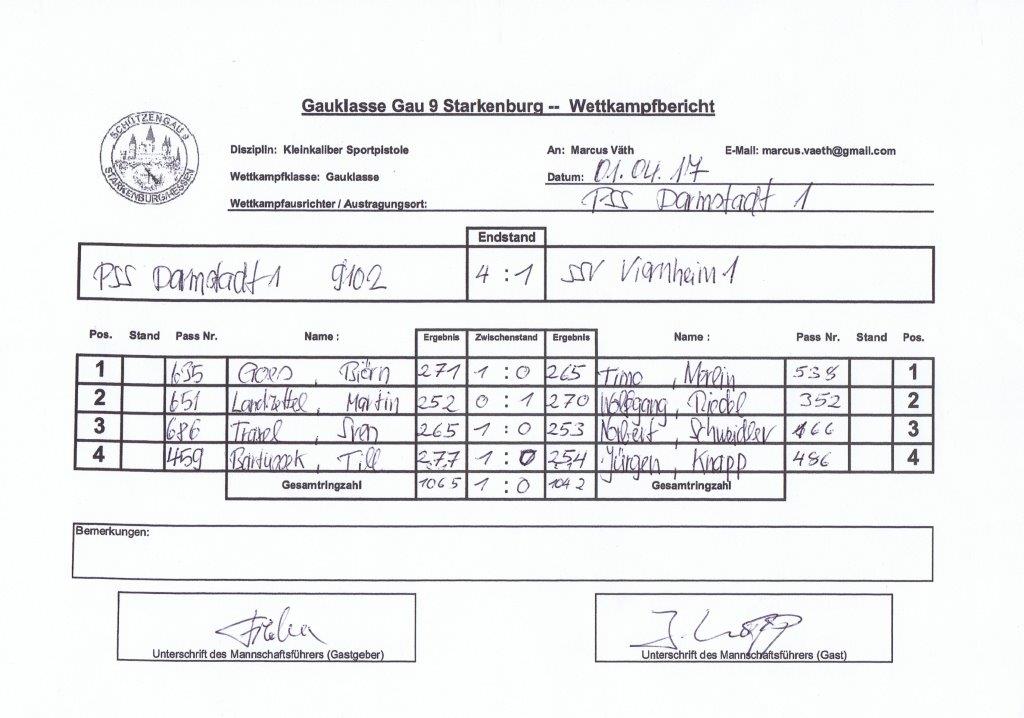 Gauklasse Gau 9 Starkenburg -- Wettkampfbericht
SCHÜTZENGAU 9
STARKENBURG/HESSEN
Disziplin: Kleinkaliber Sportpistole An: Marcus Väth E-Mail: marcus.vaeth@gmail.com
Wettkampfklasse: Gauklasse Datum: 01.04.17
Wettkampfausrichter / Austragungsort: PSS Darmstadt 1
Endstand
PSS Darmstadt 1 9102 4 : 1 SSV Viernheim 1
Pos. Stand Pass Nr. Name : Ergebnis Zwischenstand Ergebnis Name : Pass Nr. Stand Pos.
1 635 Björn 271 1 : 0 265 Timo , 538 1
2 651 Landzettel , Martin 252 0 : 1 270 Wolfgang , Riedel 352 2
3 686 , Sven 265 1 : 0 253 Norbert , Schneidler 166 3
4 459 , Till 277 1 : 0 254 Jürgen , Knapp 486 4
Gesamtringzahl 1065 1 : 0 1042 Gesamtringzahl
Bemerkungen:
Unterschrift des Mannschaftsführers (Gastgeber)
J. Knapp
Unterschrift des Mannschaftsführers (Gast)